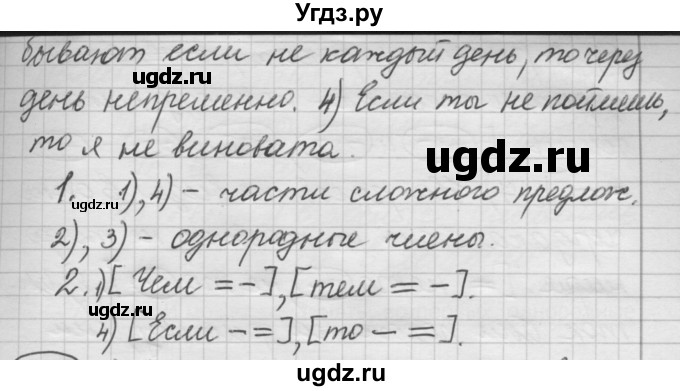 Угдз.ру
бывают если не каждый день, то через
день непременно. 4) Если ты не поймешь,
то я не виновата.
1. 1), 4) – части сложного предлож.
2), 3) – однородные члены.
2. 1) [Чем = –], [тем = –].
4) [Если – =], [то – =].
ugdz.ru
ugdz.ru
ugdz.ru
ugdz.ru
ugdz.ru
ugdz.ru
ugdz.ru